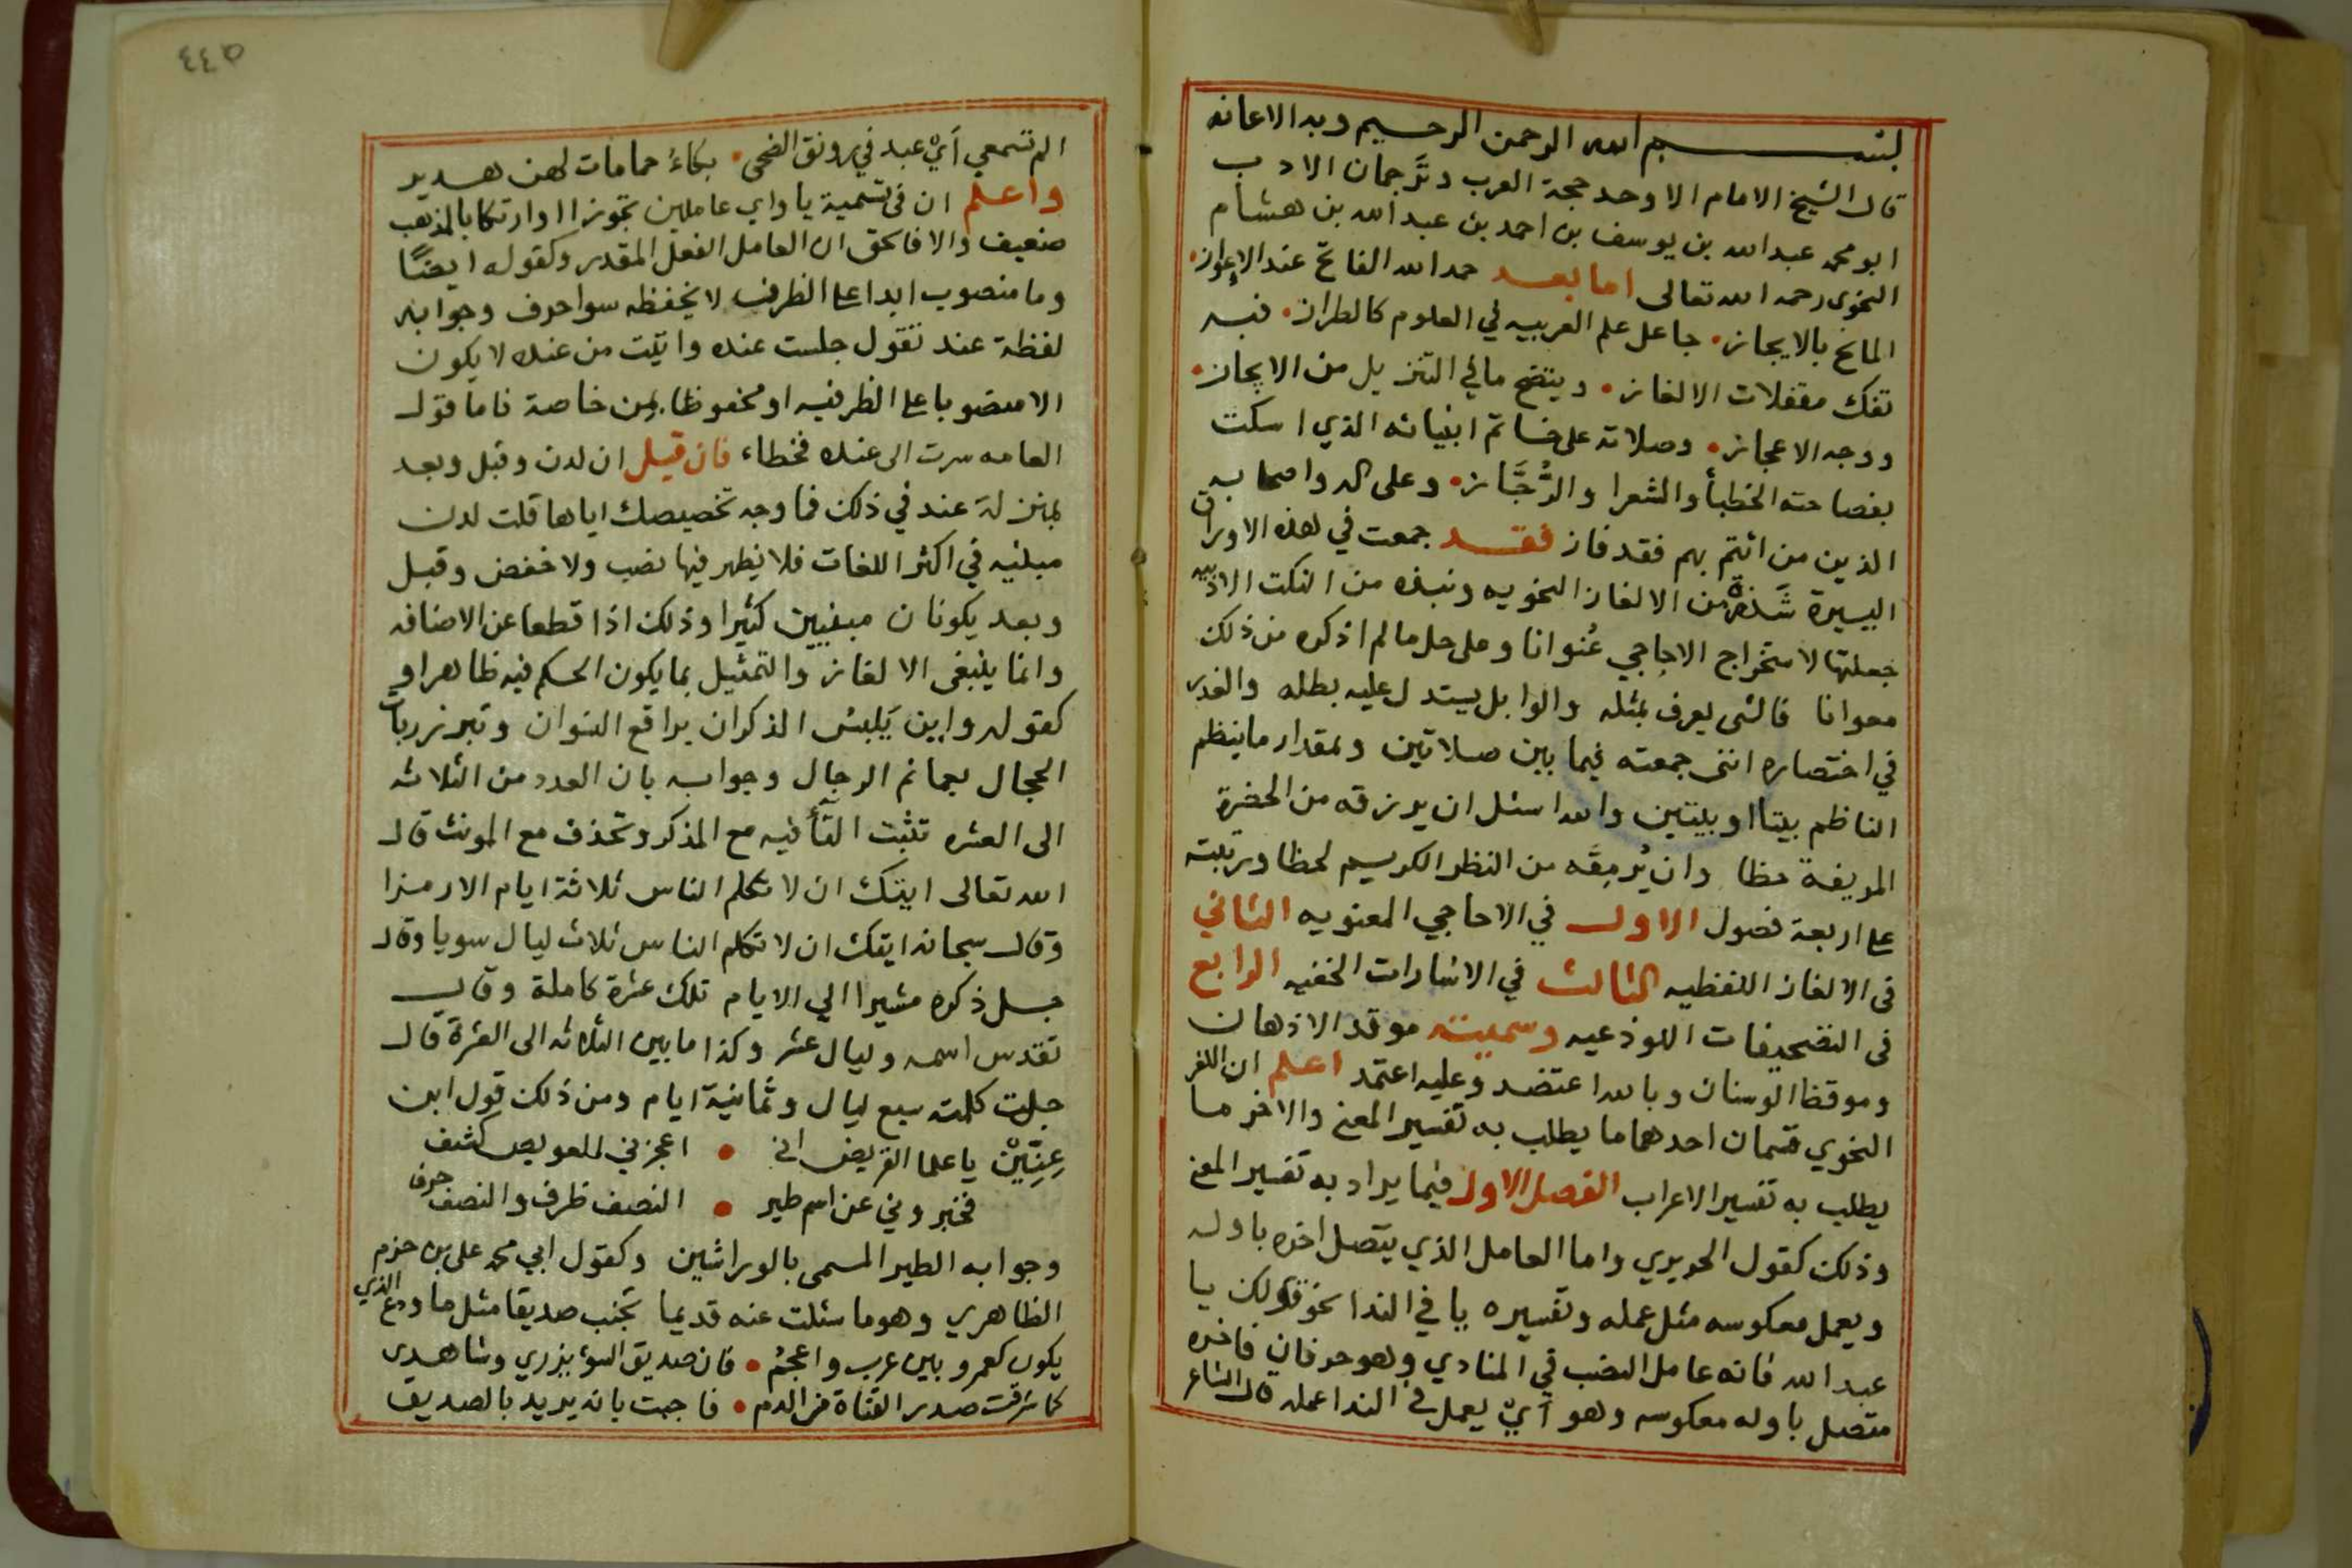 بسم الله الرحمن الرحيم وبه الاعانه
قال الشيخ الامام الاوحد حجة العرب وتَرجمان الادب
ابو محمد عبد الله بن يوسف بن احمد بن عبد الله بن هشام
النحوى رحمه الله تعالى اما بعد حمد الله الفاتح عند الاعواز
المانح بالايجاز جاعل علم العربيه في العلوم كالطراز فبه
تفك مقفلات الالغاز ويتضح ما في التنزيل من الايجاز
ووجه الاعجاز وصلاته على خاتم انبيائه الذي اسكت
بفصاحته الخطبأ والشعرا والرُّجَّاز وعلى اله واصحابه
الذين من ائتم بهم فقد فاز فقد جمعت في هذه الاوراق
اليسيرة شَذرة من الالغاز النحويه ونبذه من النكت الادبيه
جعلتها لاستخراج الاحاجي عُنوانا وعلى حل ما لم اذكره من ذلك
معوانا فالشى يعرف بمثله والوابل يستدل عليه بطله والعذر
في اختصاره اننى جمعته فيما بين صلاتين وبمقدار ما ينظم
الناظم بيتا او بيتين والله اسئل ان يرزقه من الحضرة
المريفة حظا وان يُرمِقَه من النظر الكريم لحظا ورتبته
على اربعة فصول الاول في الاحاجي المعنويه الثاني
فى الالغاز اللفظيه الثالث في الاشارات الخفيه الرابع
فى التصحيفات اللوذعيه وسميته موقد الاذهان
وموقظ الوسنان وبالله اعتضد وعليه اعتمد اعلم ان اللغز
النحوي قسمان احدهما ما يطلب به تفسير المعنى والاخر ما
يطلب به تفسير الاعراب الفصل الاول فيما يراد به تفسير المعنى
وذلك كقول الحريري واما العامل الذي يتصل اخره باوله
ويعمل معكوسه مثل عمله وتفسيره يا في الندا نحو قولك يا
عبد الله فانه عامل النصب في المنادي وهو حرفان فاخره
متصل باوله معكوسه وهو أيْ يعمل في الندا عمله قال الشاعر
٤٤٥
الم تسمعي أيْ عبد في رونق الضحى بكاءُ حمامات لهن هدير
واعلم ان فى تسمية يا واي عاملين تجوزا او ارتكابا لمذهب
ضعيف والا فالحق ان العامل الفعل المقدر وكقوله ايضًا
وما منصوب ابدا على الظرف لا يخفظه سوا حرف وجوابه
لفظة عند تقول جلست عنده واتيت من عنده لا يكون
الا منصوبا على الظرفيه او مخفوظا بمن خاصة فاما قول
العامه سرت الى عنده فخطاء فان قيل ان لدن وقبل وبعد
بمنزلة عند في ذلك فما وجه تخصيصك اياها قلت لدن
مبنيه في اكثر اللغات فلا يظهر فيها نصب ولا خفض وقبل
وبعد يكونان مبنيين كثيرا وذلك اذا قطعا عن الاضافه
وانما ينبغى الالغاز والتمثيل بما يكون الحكم فيه ظاهرا و
كقوله واين يَلبَس الذكران براقع النسوان وتبرز ربات
الحجال بعمائم الرجال وجوابه بان العدد من الثلاثه
الى العشره تثبت التأ فيه مع المذكر وتحذف مع المونث قال
الله تعالى ايتك ان لا تكلم الناس ثلاثة ايام الا رمزا
وقال سبحانه ايتك ان لا تكلم الناس ثلاث ليال سويا وقال
جل ذكره مشيرا الي الايام تلك عشرة كاملة وقال
تقدس اسمه وليال عشر وكذا ما بين الثلاثه الى العشرة قال
جلت كلمته سبع ليال وثمانية ايام ومن ذلك قول ابن
عِنِيِّيْنْ يا علما القريض انى اعجزني للعويص كشف
فخبروني عن اسم طير النصف ظرف والنصف حرف
وجوابه الطير المسمى بالوراشين وكقول ابي محمد على بن حزم
الظاهري وهو ما سئلت عنه قديما تجنب صديقا مثل ما ودع الذي
يكون كعمرو بين عرب واعجم فان صديق السوء يزري وشاهدى
كما شرقت صدر القناة من الدم فاجبت بانه يريد بالصديق